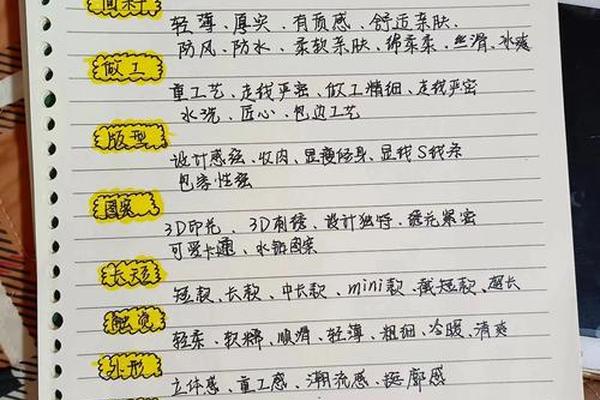 面料
轻薄、厚实、有质感、舒适亲肤、
防风、防水、柔软亲肤、绵柔柔、丝滑、冰爽
做工
重工艺、走线严密、做工精细、走线严密
水洗、匠心、包边工艺
版型
设计感强、收肉、显瘦修身、显线S线条
包容性强
图案
3D印花、3D刺绣、设计独特、绣花紧密
可爱卡通、水钻图案
长短
短款、长款、中长款、mini款、截短款、超长
触觉
轻柔、软糯、顺滑、轻薄、粗细、冷暖、清爽
外形
立体感、重工感、潮流感、挺廓感